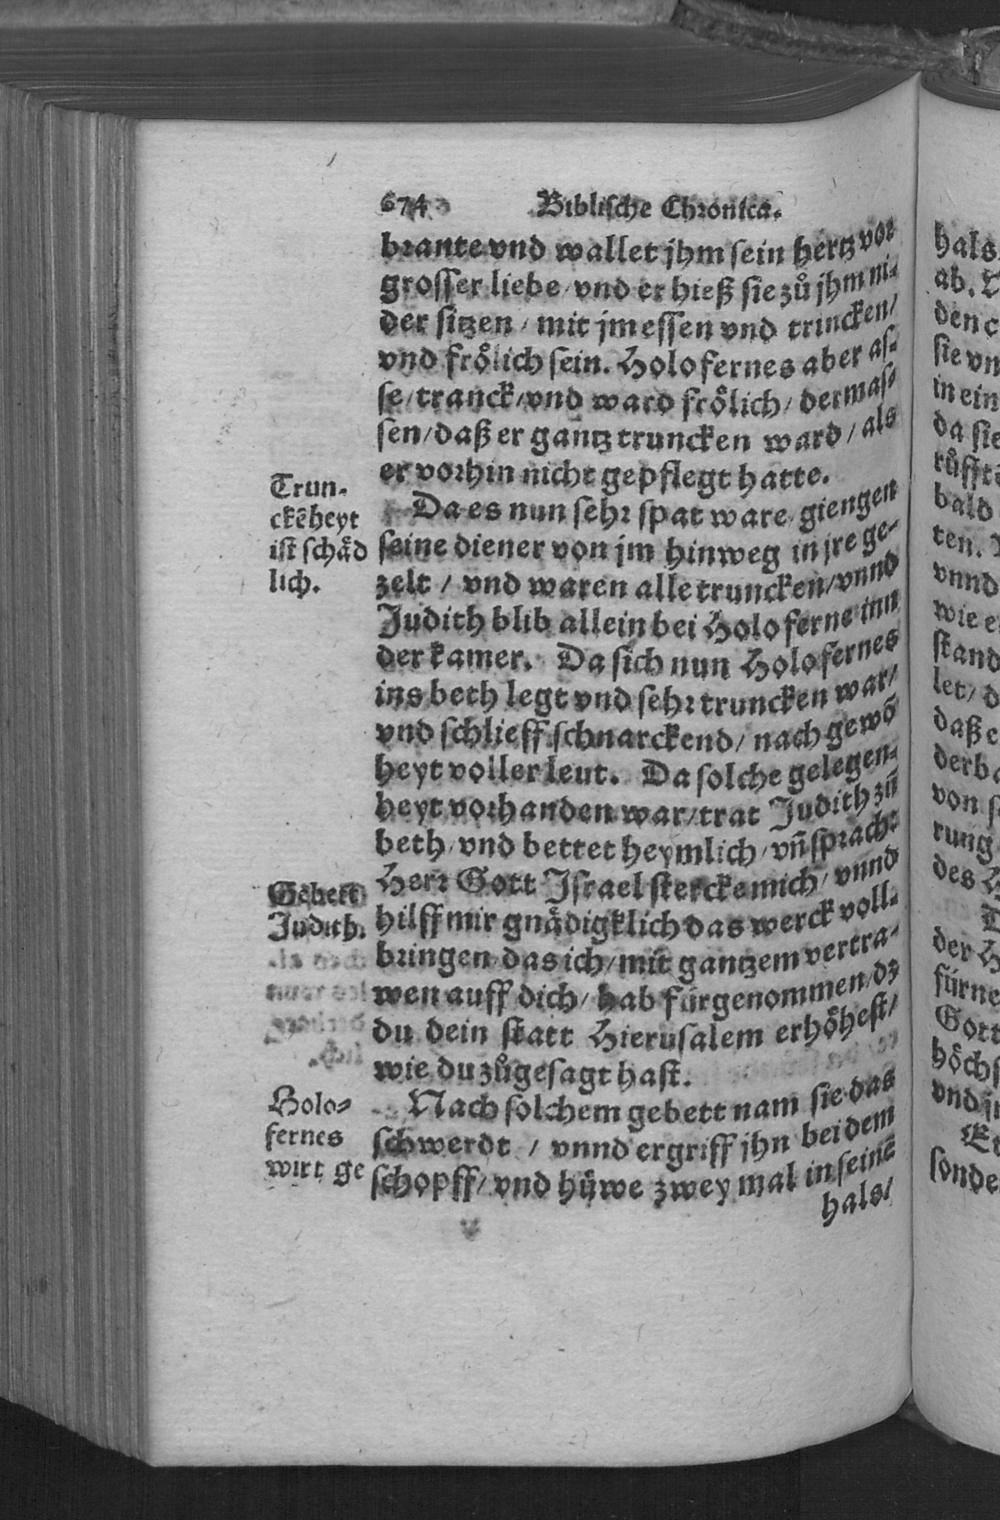 674 Biblische Chronica.
brante vnd wallet jhm sein hertz vor
grosser liebe / vnd er hieß sie zů jhm ni-
der sitzen / mit jm essen vnd trincken /
vnd froͤlich sein. Holofernes aber as-
se / tranck / vnd ward froͤlich / dermas-
sen / daß er gantz truncken ward / als
er vorhin nicht gepflegt hatte.
Trun-
ckẽheyt
ist schaͤd
lich.
Da es nun sehr spat ware giengen
seine diener von jm hinweg in jre ge-
zelt / vnd waren alle truncken / vnnd
Judith blib allein bei Holoferne inn
der kamer. Da sich nun Holofernes
ins beth legt vnd sehr truncken war /
vnd schlieff schnarckend / nach gewõ
heyt voller leut. Da solche gelegen-
heyt vorhanden war / trat Judith zũ
beth / vnd bettet heymlich / vñ sprach:
Gebett
Judith.
Herr Gott Israel stercke mich / vnnd
hilff mir gnaͤdigklich das werck voll-
bringen / das ich / mit gantzem vertra-
wen auff dich / hab fürgenommen / dz
du dein statt Hierusalem erhoͤhest /
wie du zůgesagt hast.
Holo-
fernes
wirt ge
Nach solchem gebett nam sie das
schwerdt / vnnd ergriff jhn bei dem
schopff / vnd hüwe zwey mal in seinẽ
hals /
hals
ab.
den
sie vn
in ein
da sie
růfft
bald
ten.
vnnd
wie e
stand
let / d
daß e
derb
von s
rung
des H
der H
fürne
Gott
hoͤchs
vnd j
sonde